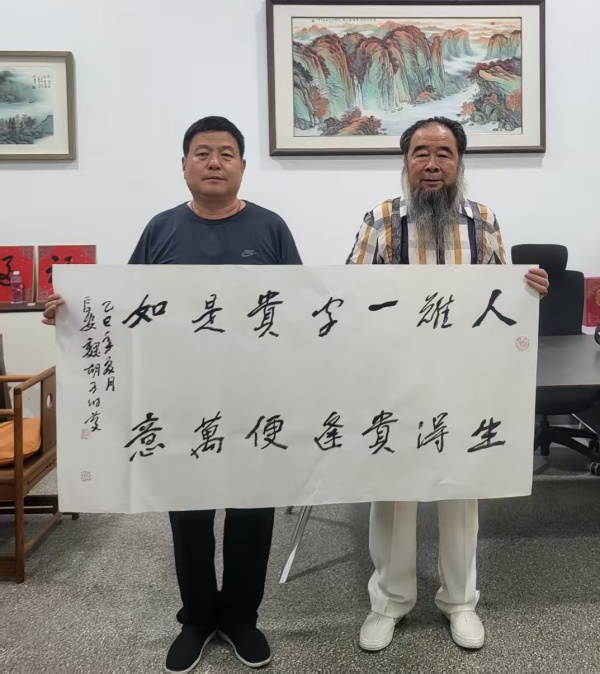 人生
難得
一貴
字逢
貴便
是萬
如意
乙巳年夏月
長安魏胡子